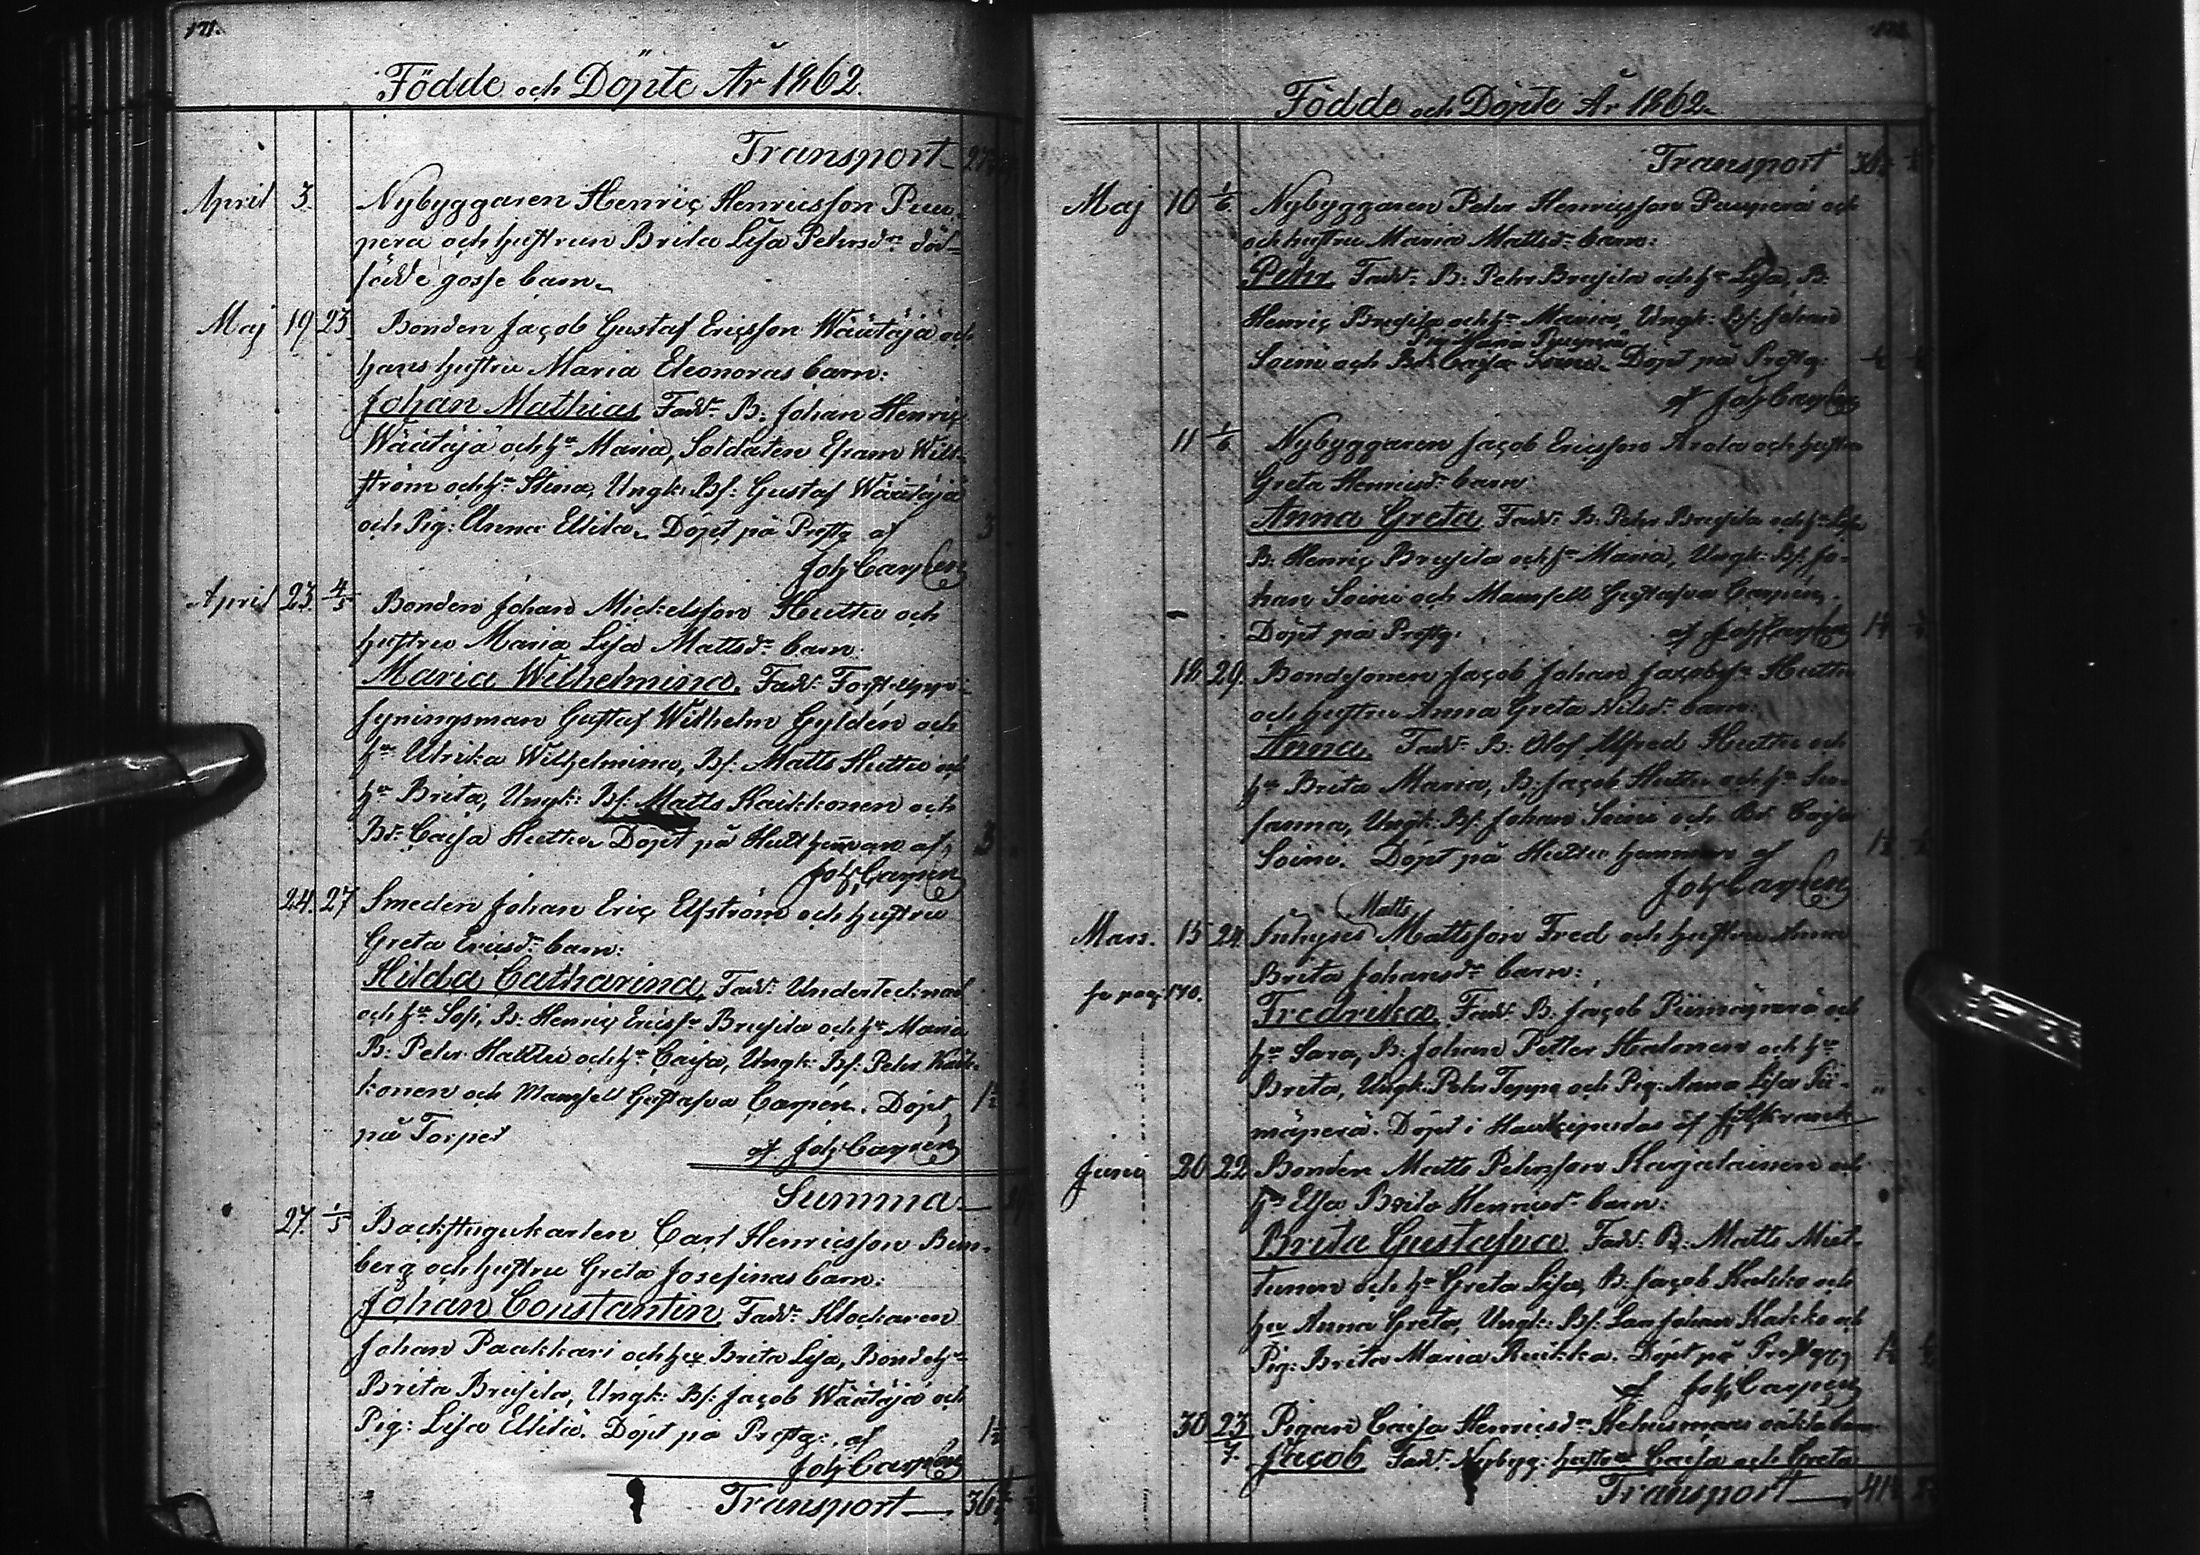 171.
Födde och Döpte År 1862
Transport
April 3. Nybyggaren Henric Henricsson Puu-
pera och hustrun Brita Lisa Pehrsdr död-
födde gosse barn.
Maj 19 23 Bonden Jacob Gustaf Ericsson Wäätäjä och
hans hustru Maria Eleonoras barn:
Johan Mathias Fadd: B: Johan Henric
Wäätäjä och hu Maria, Soldaten Efraim Will-
ström och hu Stina, Ungk: Bs: Gustaf Wäätäjä
och Pig: Anna Ellilä. Döpt på Prestg af 3
Joh Carpén
April 23. 4/5 Bonden Johan Mickelsson Huttu och
hustru Maria Lisa Mattsdr barn.
Maria Wilhelmina. Fadd: Forst-Uppsy-
syningsman Gustaf Wilhelm Gyldén och
hu Ulrika Wilhelmina, Bs: Matts Huttu och
hu Brita, Ungk: Bs: Matts Kaikkonen och
Bd: Caisa Huttu. Döpt på Hutt hemman af 3
Joh Carpén
24. 27 Smeden Johan Eric Elfström och hustru
Greta Ericsdr barn:
Hilda Catharina, Fadd: Undertecknad
och hu Sofi, B: Henric Ericss: Brusila och hu Maria
B: Pehr Huttu och hu Caisa, Ungk: Bs: Pehr Kaik-
konen och Mamsell Gustafva Carpén. Döpt 1½
på Torpet af Joh Carpén
Summa
27. 1/5 Backstugukarlen Carl Henricsson Bun-
berg och hustru Greta Josefinas barn:
Johan Constantin, Fadd: Klockaren
Johan Paakkari och hu Brita Lisa, Bondehu
Brita Brusila, Ungk: Bs: Jacob Wäätäjä och
Pig: Lisa Ellilä. Döpt på Prestg: af 1½
Joh Carpén
Transport 36
Födde och Döpte År 1862
Transport
Maj 10 1/6 Nybyggaren Pehr Henricsson Puuperä och
och hustru Maria Mattsdr barn:
Pehr Fadd: B: Pehr Brusila och hu Lisa, B:
Henric Brusila och hu Maria, Ungk: Bs: Johan
Pig: Maria
Soini och Bd: Caisa Soini. Döpt på Prestg:
af Joh Carpén
11 1/6 Nybyggaren Jacob Ericsson Arola och hustru
Greta Henricsdr barn
Anna Greta Fadd: B: Pehr Brusila och hu Lisa
B: Henric Brusila och hu Maria, Ungk: Bs: Jo-
han Soini och Mamsell Gustafva Carpén.
Döpt på Prestg: af Joh Carpén 1½
18. 29. Bondesonen Jacob Johan Jacobss: Huttu
och hustru Anna Greta Nilsdr barn:
Anna. Fadd: B: Olof Alfred Huttu och
hu Brita Maria, B: Jacob Huttu och hu Su-
sanna, Ungk: Bs: Johan Soini och Bd: Caisa
Soini. Döpt på Huttu hemman af 1½
Joh Carpén
Matts
Mars. 15 24. Inhyses Mattsson Fred och hustru Anna
Brita Johansdr barn:
fr pag: 170.
Fredrika. Fadd: B. Jacob Piimäperä och
hu Sara, B: Johan Petter Halonen och hu
Brita, Ungk: Pehr Toppe och Pig: Anna Lisa Pii-
mäperä. Döpt i Haukipudas af
Juni 20 22 Bonden Matts Pehrsson Karjalainen och
hu Elsa Brita Henricsdr barn:
Brita Gustafva Fadd: B: Matts Miet-
tunen och hu Greta Lisa, B: Jacob Kakko och
hu Anna Greta, Ungk: Bs: Lars Johan Kakko och
Pig: Brita Maria Ruikka. Döpt på Prestg: 1½
af Joh Carpén
30 23/7. Pigan Caisa Henricsdr oäkta barn
Jacob Fadd: Nybyg: hustr Caisa och Greta
Transport 41